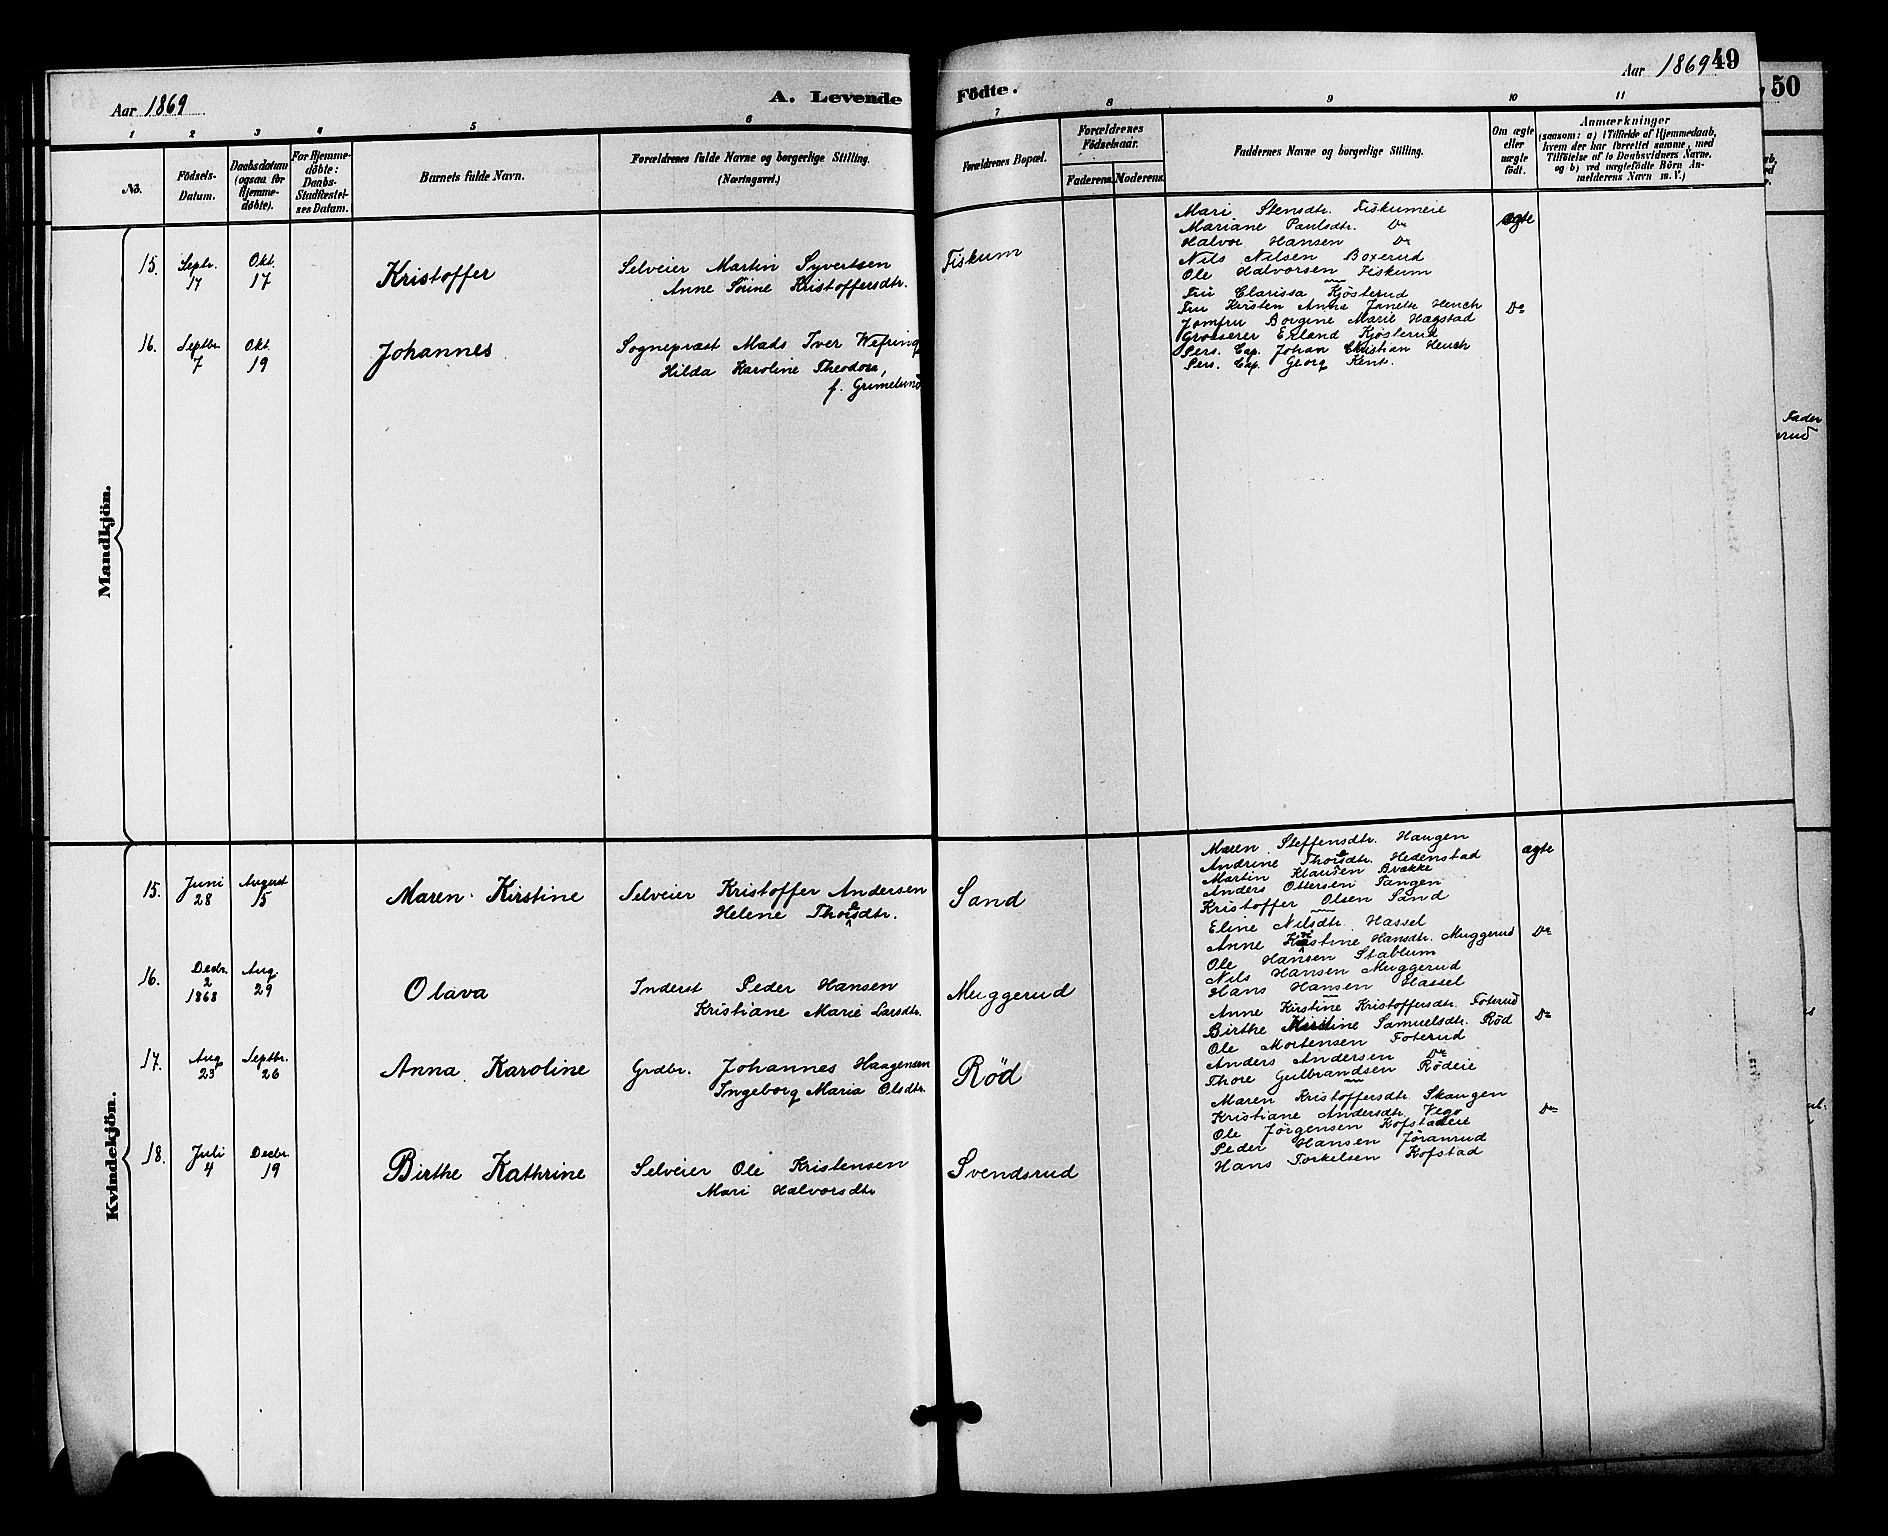 Aar 1869
A. Levende Födte.
Aar 1869
49
50
1 2 3 4 5 6 7 8 9 10 11
No.
Födsels-Datum.
Daabsdatum (ogsaa for Hjemme-döbte).
For Hjemme-döbte: Daabs-Stadfæstel-ses Datum.
Barnets fulde Navn.
Forældrenes fulde Navne og borgerlige Stilling.
(Næringsvei.)
Forældrenes Bopæl.
Forældrenes Födselsaar.
Faderens. Moderens.
Faddernes Navne og borgerlige Stilling.
Om ægte eller uægte födt.
Anmærkninger
(saasom: a) i Tilfælde af Hjemmedaab,
hvem der har forrettet samme, med
Tilföielse af to Daabsvidners Navne.
og b) ved uægtefödte Börn An-
melderens Navn m. V.)
Mandkjön.
15. Septr. 17 Okt. 17 Kristoffer
Selveier Martin Syvertsen
Anne Sörine Kristoffersdtr.
Fiskum
Mari Stensdtr. Fiskumeie
Mariane Paulsdtr. Do
Halvor Hansen Do
Nils Nilsen Boxerud
Ole Halvorsen Fiskum
ægte
16. Septbr. 7 Okt. 19 Johannes
Sognepræst Mads Iver Wefring
Hilda Karoline Theodora,
f. Grimelund
Fru Clarissa Kjösterud
Fru Kristen Anna Janette Hench
Jomfru Borgine Marie Hagstad
Grosserer Erland Kjösterud
Pers. Cap. Johan Christian Hench
Pers. Cap. Georg Kent.
Do
Kvindekjön.
15. Juni 28 August 15 Maren Kirstine
Selveier Kristoffer Andersen
Helene Thoresdtr.
Sand
Maren Steffensdtr. Haugen
Andrine Thoresdtr. Hedenstad
Martin Klausen Brække
Anders Ottersen Tangen
Kristoffer Olsen Sand
ægte
16. Decbr. 2 1868 Aug. 29 Olava
Inderst Peder Hansen
Kristiane Marie Larsdtr.
Muggerud
Eline Nilsdtr. Hassel
Anne Kirstine Hansdtr. Muggerud
Ole Hansen Stablum
Nils Hansen Muggerud
Hans Hansen Hassel
Do
17. Aug 23 Septbr. 26 Anna Karoline
Grdbr. Johannes Haagensen
Ingeborg Maria Olsdtr.
Röd
Anne Kirstine Kristoffersdtr. Foterud
Birthe Kirstine Samuelsdtr. Röd
Ole Mortensen Foterud
Anders Andersen Do
Thore Gulbrandsen Rödeie
Do
18. Juli 4 Decbr. 19 Birthe Kathrine
Selveier Ole Kristensen
Mari Halvorsdtr
Svendsrud
Maren Kristoffersdtr. Skaugen
Kristiane Andersdtr. Vego
Ole Jörgensen Kofstadeie
Peder Hansen Jöranrud
Hans Torkelsen Kofstad
Do
Fader